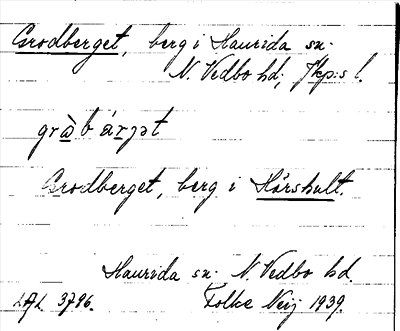 Grodberget, berg i Haurida sn.
N. Vedbo hd., Jkp:s l.
Grodberget, berg i Hårshult.
Haurida sn. N. Vedbo hd.
3796. Folke Neij 1939.